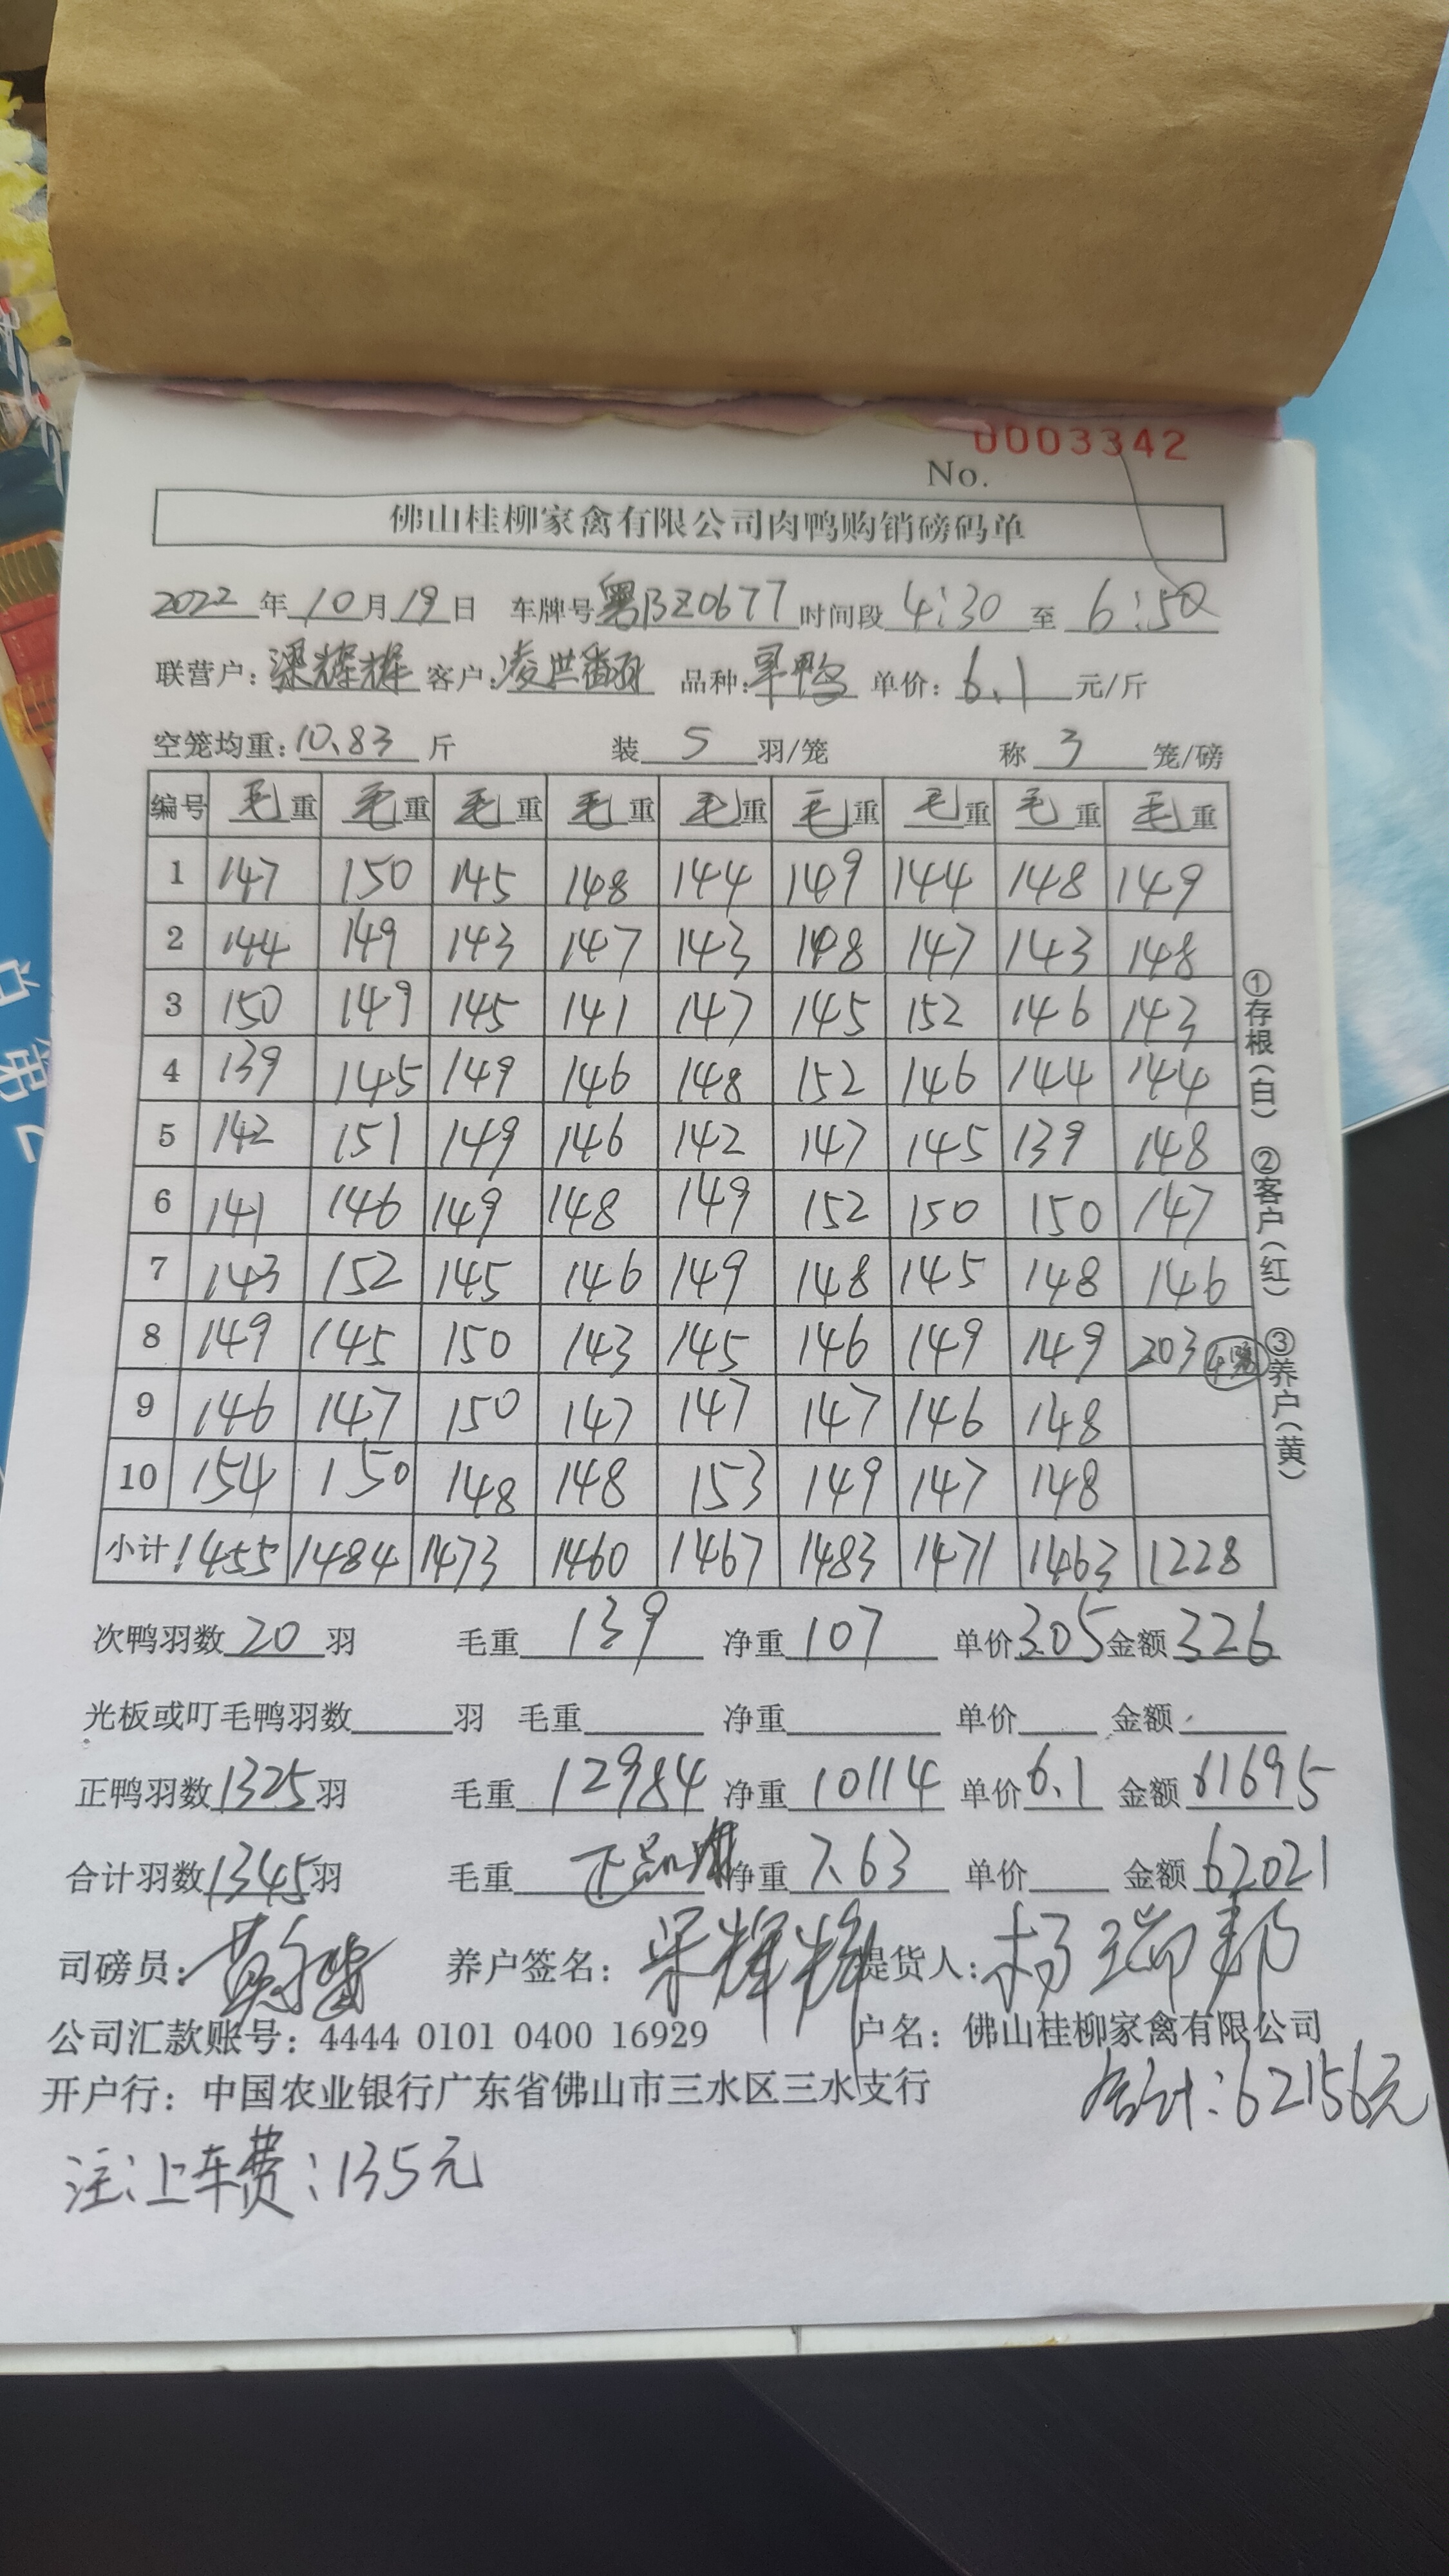 0003342
No.
佛山桂柳家禽有限公司肉鸭购销磅码单
2022 年 10 月 19 日 车牌号 粤BZ0677 时间段 4:30 至 6:50
联营户: 梁辉辉 客户: 凌世 品种: 单价: 6.1 元/斤
空笼均重: 10.83 斤 装 5 羽/笼 称 3 笼/磅
编号 毛重 毛重 毛重 毛重 毛重 毛重 毛重 毛重 毛重
1 147 150 145 148 144 149 144 148 149
2 144 149 143 147 143 148 147 143 148
3 150 149 145 141 147 145 152 146 143
4 139 145 149 146 148 152 146 144 144
5 142 151 149 146 142 147 145 139 148
6 141 146 149 148 149 152 150 150 147
7 143 152 145 146 149 148 145 148 146
8 149 145 150 143 145 146 149 149 203
9 146 147 150 147 147 147 146 148
10 154 150 148 148 153 149 147 148
小计 1455 1484 1473 1460 1467 1483 1471 1463 1228
①存根(白) ②客户(红) ③养户(黄)
次鸭羽数 20 羽 毛重 139 净重 107 单价 3.05 金额 326
光板或叮毛鸭羽数 羽 毛重 净重 单价 金额
正鸭羽数 1325 羽 毛重 12984 净重 10114 单价 6.1 金额 61695
合计羽数 1345 羽 毛重 净重 7.63 单价 金额 62021
司磅员: 养户签名: 梁辉辉 提货人: 杨瑞邦
公司汇款账号: 4444 0101 0400 16929 户名: 佛山桂柳家禽有限公司
开户行: 中国农业银行广东省佛山市三水区三水支行 合计: 62156元
注: 上车费: 135元